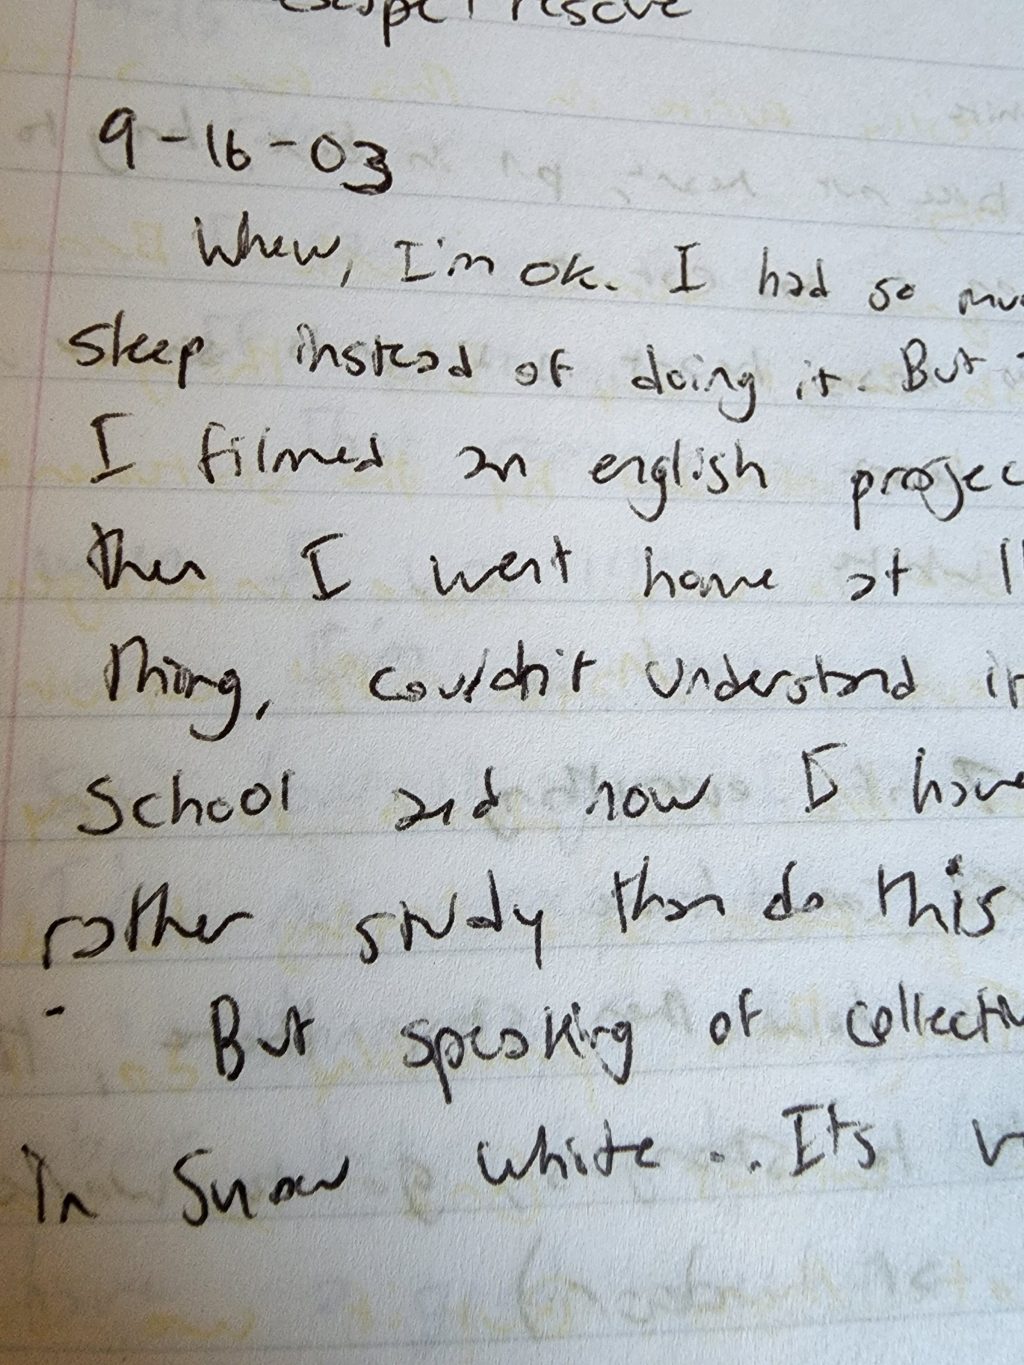 escape / rescue
9-16-03
Whew, I'm ok. I had so
sleep instead of doing it. But
I filmed an english projec
then I went home at
thing, couldn't understand it
school and now I have
rather study than do this
- But speaking of collectiv
in Snow White... Its